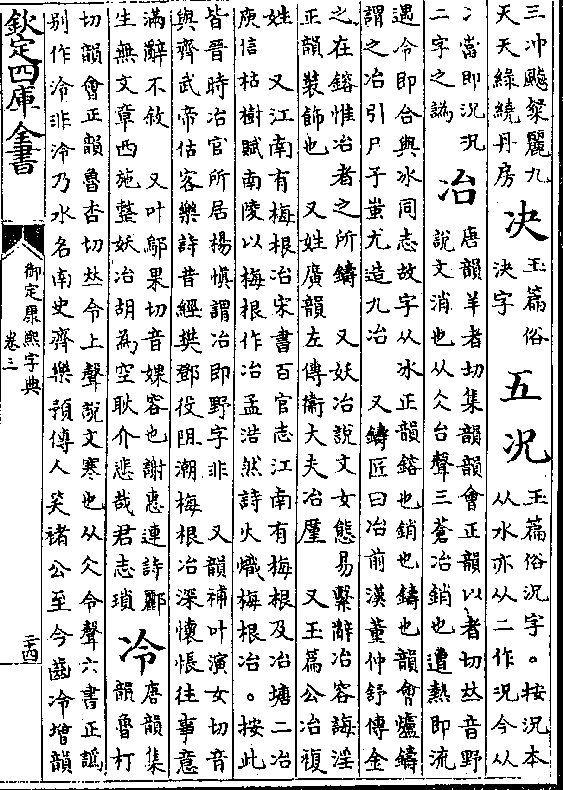 三冲飈粲麗九
天天綠繞丹房
决
玉篇俗
決字
五
况
玉篇俗況字。按況本
从水亦从二作况今从
冫當即况況
二字之譌
冶
唐韻羊者切集韻韻會正韻以者切𠀤音野
說文消也从仌台聲三蒼冶銷也遭熱即流
遇冷即合與冰同志故字从冰正韻鎔也銷也鑄也韻會爐鑄
謂之冶引尸子蚩尤造九冶 又鑄匠曰冶前漢董仲舒傳金
之在鎔惟冶者之所鑄 又妖冶說文女態易繫辭冶容誨淫
正韻裝飾也 又姓廣韻左傳衛大夫冶廑 又玉篇公冶複
姓 又江南有梅根冶宋書百官志江南有梅根及冶塘二冶
庾信枯樹賦南陵以梅根作冶孟浩然詩火熾梅根冶。按此
皆晉時冶官所居楊慎謂冶即野字非 又韻補叶演女切音
與齊武帝估客樂詩昔經樊鄧役阻潮梅根冶深懷悵往事意
滿辭不敘 又叶鄔果切音婐容也謝惠連詩酈
生無文章西施整妖冶胡為空耿介悲哉君志瑣
冷
唐韻集
韻魯打
切韻會正韻魯杏切𠀤令上聲說文寒也从仌令聲六書正譌
别作泠非泠乃水名南史齊樂預傳人笑褚公至今齒冷增韻
欽定四庫全書
御定康熙字典
卷三
二十四